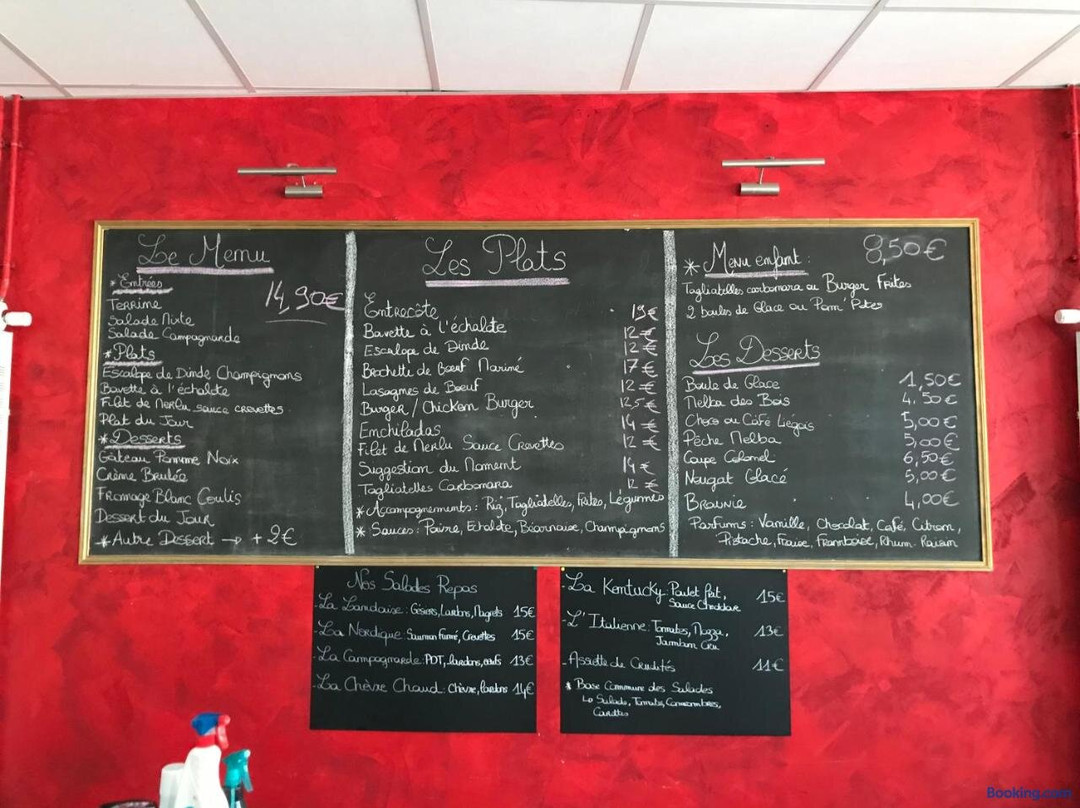 Le Menu
* Entrées
14,90€
Terrine
Salade Mixte
Salade Campagnarde
* Plats
Escalope de Dinde Champignons
Bavette à l'échalote
Filet de Merlu sauce crevettes
Plat du Jour
* Desserts
Gâteau Pomme Noix
Crème Brulée
Fromage Blanc Coulis
Dessert du Jour
* Autre Dessert → + 2€
Les Plats
Entrecôte 19€
Bavette à l'échalote 12€
Escalope de Dinde 12€
Brochette de Bœuf Mariné 17€
Lasagnes de Bœuf 12€
Burger / Chicken Burger 12,5€
Enchiladas 14€
Filet de Merlu Sauce Crevettes 12€
Suggestion du Moment 14€
Tagliatelles Carbonara 12€
* Accompagnements : Riz, Tagliatelles, Frites, Légumes
* Sauces : Poivre, Echalote, Béarnaise, Champignons
* Menu enfant : 8,50€
Tagliatelles carbonara ou Burger Frites
2 boules de Glace ou Pom' Potes
Les Desserts
Boule de Glace 1,50€
Melba des Bois 4.50€
Choco ou Café Liégois 5,00€
Pêche Melba 5,00€
Coupe Colonel 6,50€
Nougat Glacé 5,00€
Brownie 4,00€
Parfums : Vanille, Chocolat, Café, Citron,
Pistache, Fraise, Framboise, Rhum-Raisin
Nos Salades Repas
- La Landaise : Gésiers, Lardons, Magrets 15€
- La Nordique : Saumon fumé, Crevettes 15€
- La Campagnarde : PDT, lardons, oeufs 13€
- La Chèvre Chaud : Chèvre, lardons 14€
- La Kentucky : Poulet frit, 15€
Sauce Cheddar
- L'Italienne : Tomates, Mozza, 13€
Jambon Cru
- Assiette de Crudités 11€
* Base Commune des Salades
Salade, Tomates, Concombres,
Carottes
Booking.com